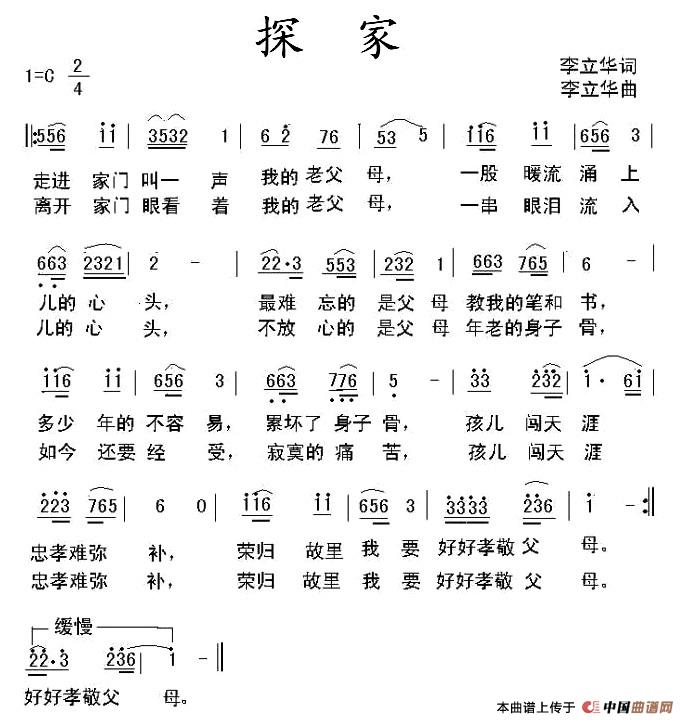 探 家
1=C 2/4
李立华词
李立华曲
556 11 | 3532 1 | 6 2 76 | 53 5 | 116 11 | 656 3 |
走进 家门 叫一 声 我的 老父 母， 一股 暖流 涌 上
离开 家门 眼看 着 我的 老父 母， 一串 眼泪 流 入
663 2321 | 2 - | 22·3 553 | 232 1 | 663 765 | 6 - |
儿的 心 头， 最难 忘的 是父 母 教我的 笔和 书，
儿的 心 头， 不放 心的 是父 母 年老的 身子 骨，
116 11 | 656 3 | 663 776 | 5 - | 33 232 | 1· 61 |
多少 年的 不容 易， 累坏了 身子 骨， 孩儿 闯天 涯
如今 还要 经 受， 寂寞的 痛 苦， 孩儿 闯天 涯
223 765 | 6 0 | 116 11 | 656 3 | 3333 236 | 1 - :||
忠孝难弥 补， 荣归 故里 我 要 好好孝敬 父 母。
忠孝难弥 补， 荣归 故里 我 要 好好孝敬 父 母。
缓慢
22·3 236 | 1 - ||
好好孝敬父 母。
本曲谱上传于 中国曲谱网